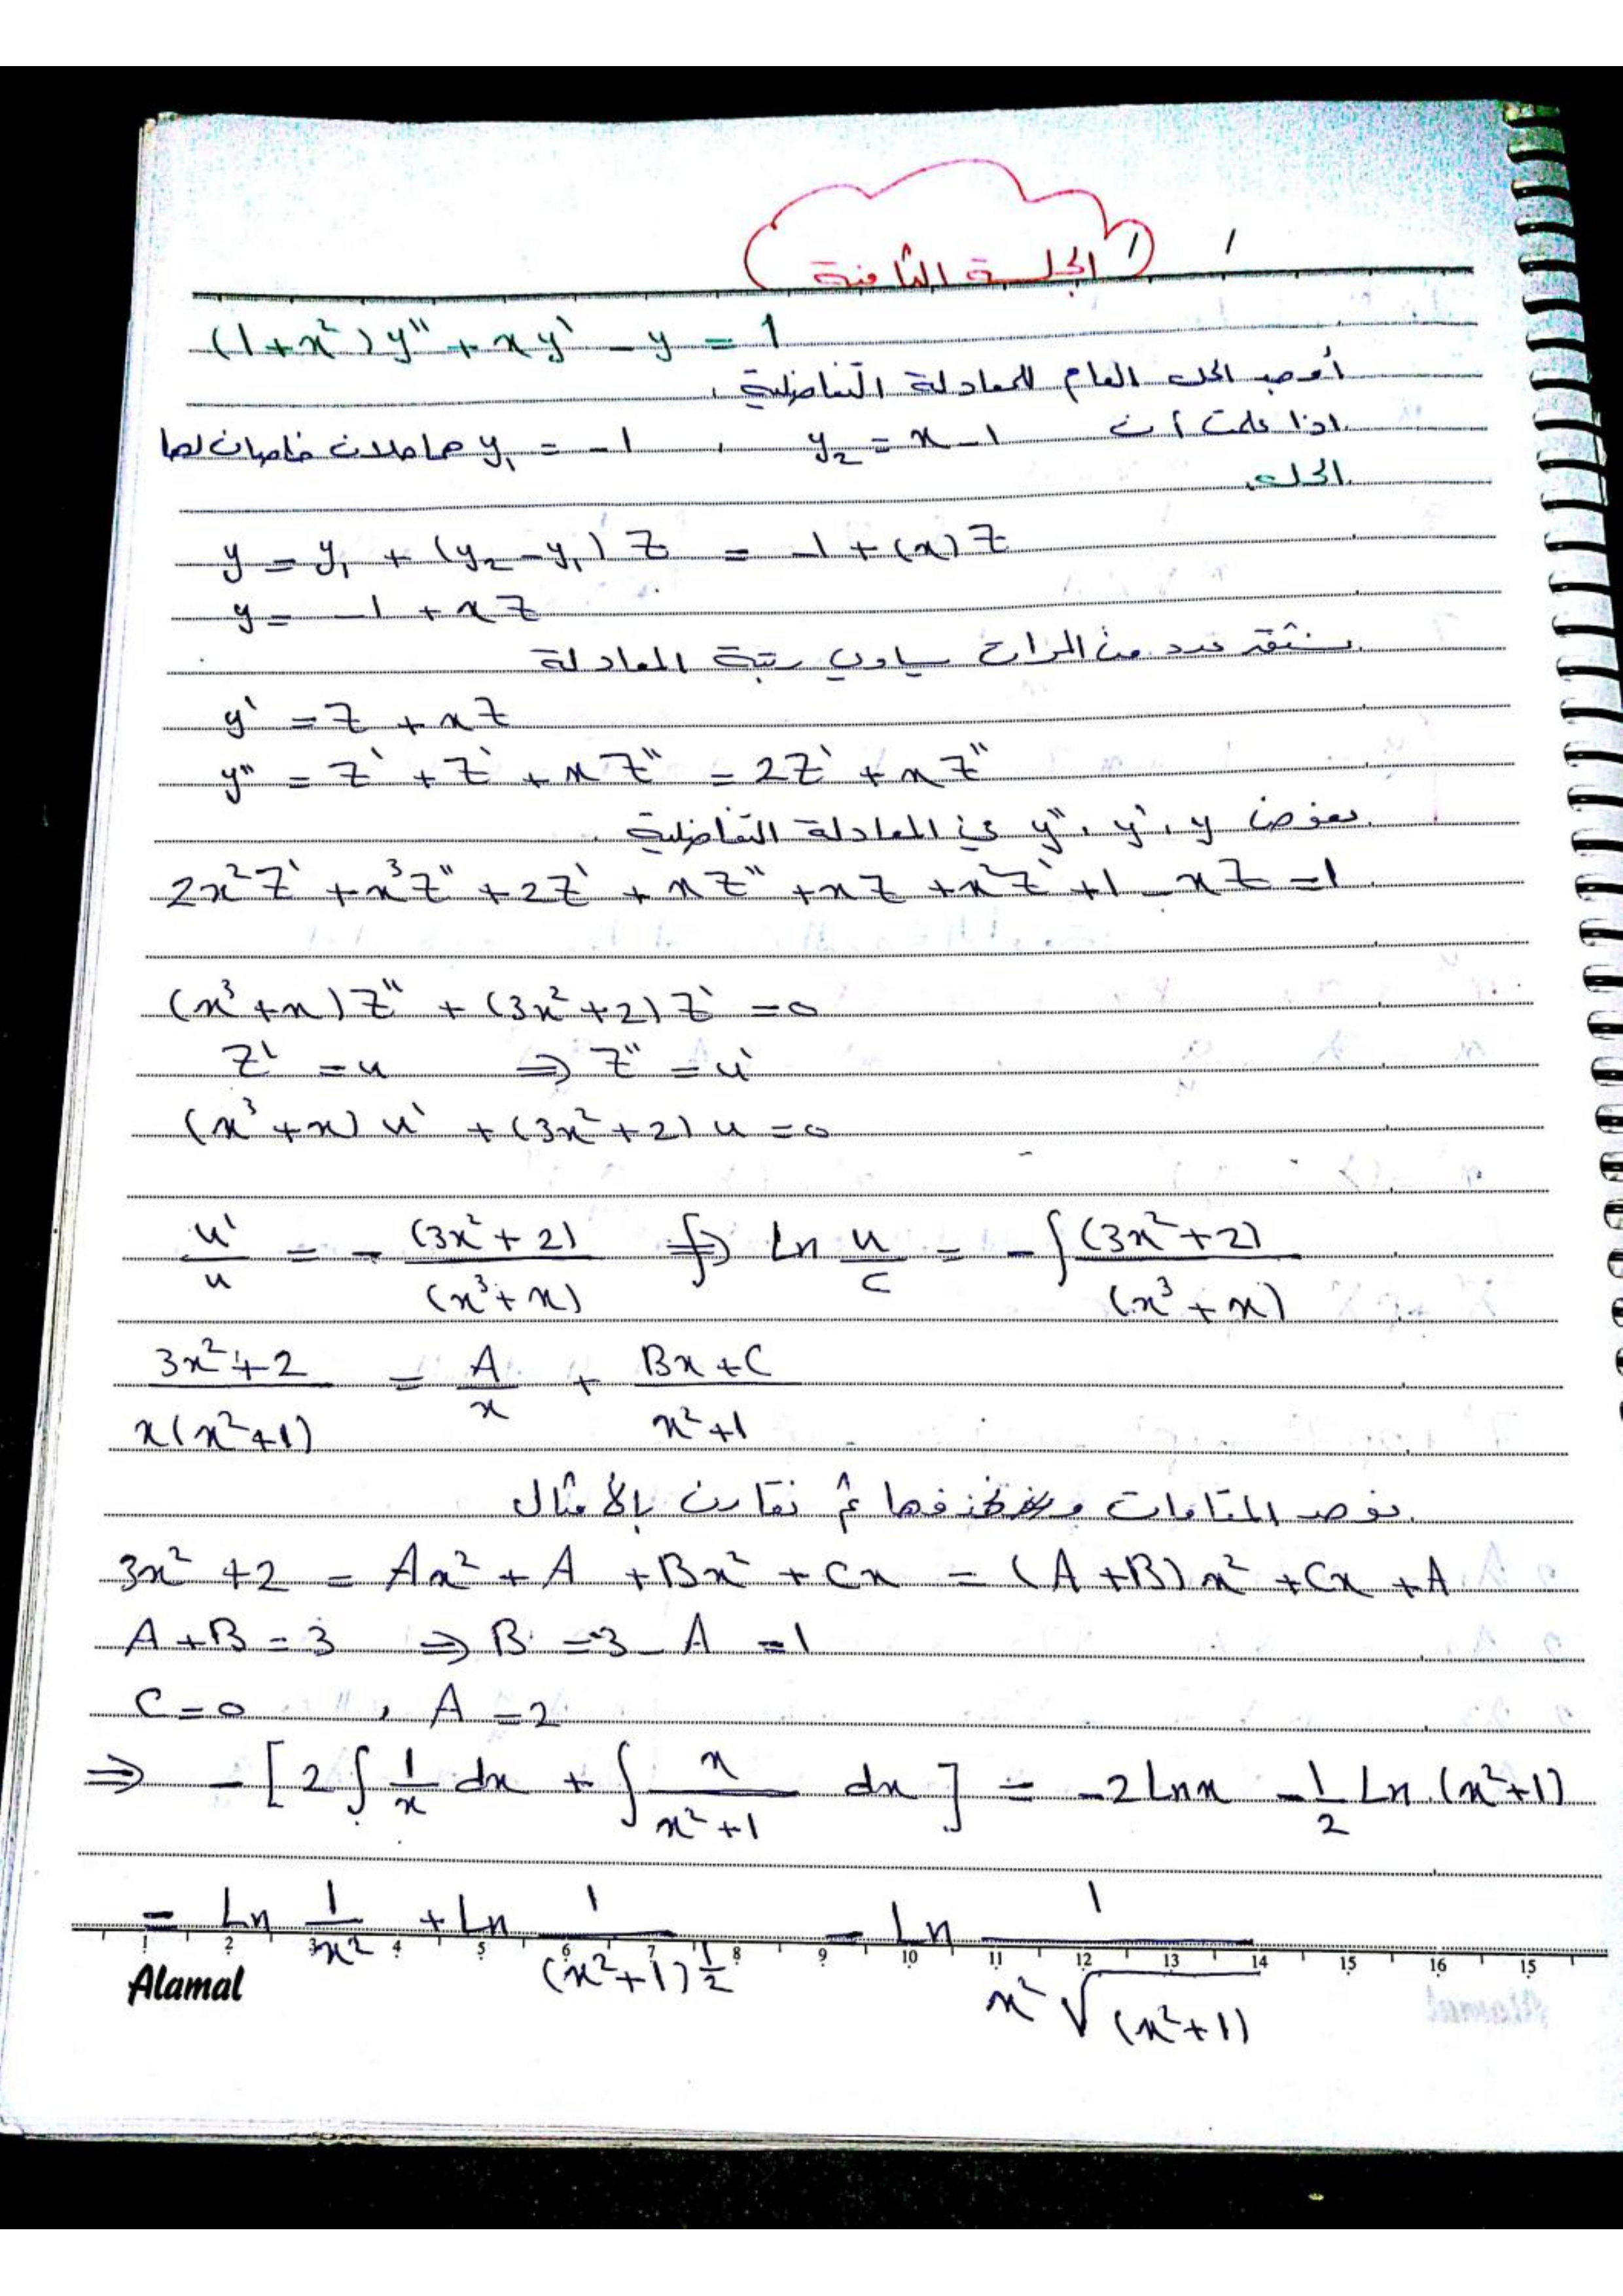 الجلسة الثامنة
(1+x²)y'' + xy' - y = 1
أوجد الحل العام للمعادلة التفاضلية .
اذا علمت أن y₂ = x-1 , y₁ = -1 هما حلان خاصان لها
الحل.
y = y₁ + (y₂-y₁) Z = -1 + (x) Z
y = -1 + xZ
نشتق عدد من المرات يساوي رتبة المعادلة
y' = Z + xZ
y'' = Z' + Z' + xZ'' = 2Z' + xZ''
نعوض y'' , y' , y في المعادلة التفاضلية .
2x²Z' + x³Z'' + 2Z' + xZ'' + xZ + x²Z' + 1 - xZ = 1
(x³+x)Z'' + (3x²+2)Z' = 0
Z' = u ⇒ Z'' = u'
(x³+x)u' + (3x²+2)u = 0
u'/u = - (3x²+2)/(x³+x) ∫⇒ Ln u/c = -∫ (3x²+2)/(x³+x)
3x²+2 / x(x²+1) = A/x + Bx+C / x²+1
نوحد المقامات ونحذفها ثم نقارن بالأمثال
3x²+2 = Ax² + A + Bx² + Cx = (A+B)x² + Cx + A
A+B = 3 ⇒ B = 3-A = 1
C = 0 , A = 2
⇒ -[2∫ 1/x dx + ∫ x/x²+1 dx] = -2Lnx - 1/2 Ln(x²+1)
= Ln 1/x² + Ln 1/(x²+1)^½ = Ln 1/x²√(x²+1)
1 2 3 4 5 6 7 8 9 10 11 12 13 14 15 16 15
Alamal